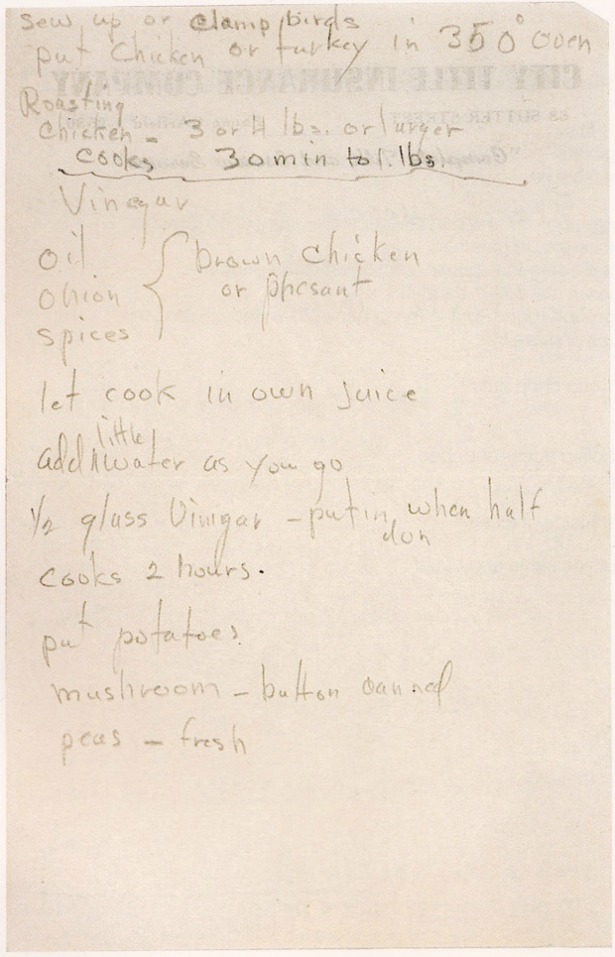 sew up or clamp birds
put Chicken or turkey in 350° oven
Roasting
Chicken - 3 or 4 lbs. or larger
cooks 30 min to 1. lbs.
Vinegar
oil
onion
spices
brown Chicken
or Phesant
let cook in own juice
add little water as you go
1/2 glass Vinigar - put in when half
don
cooks 2 hours.
put potatoes.
mushroom - button canned
peas - fresh
CITY TITLE INSURANCE COMPANY
SUTTER STREET